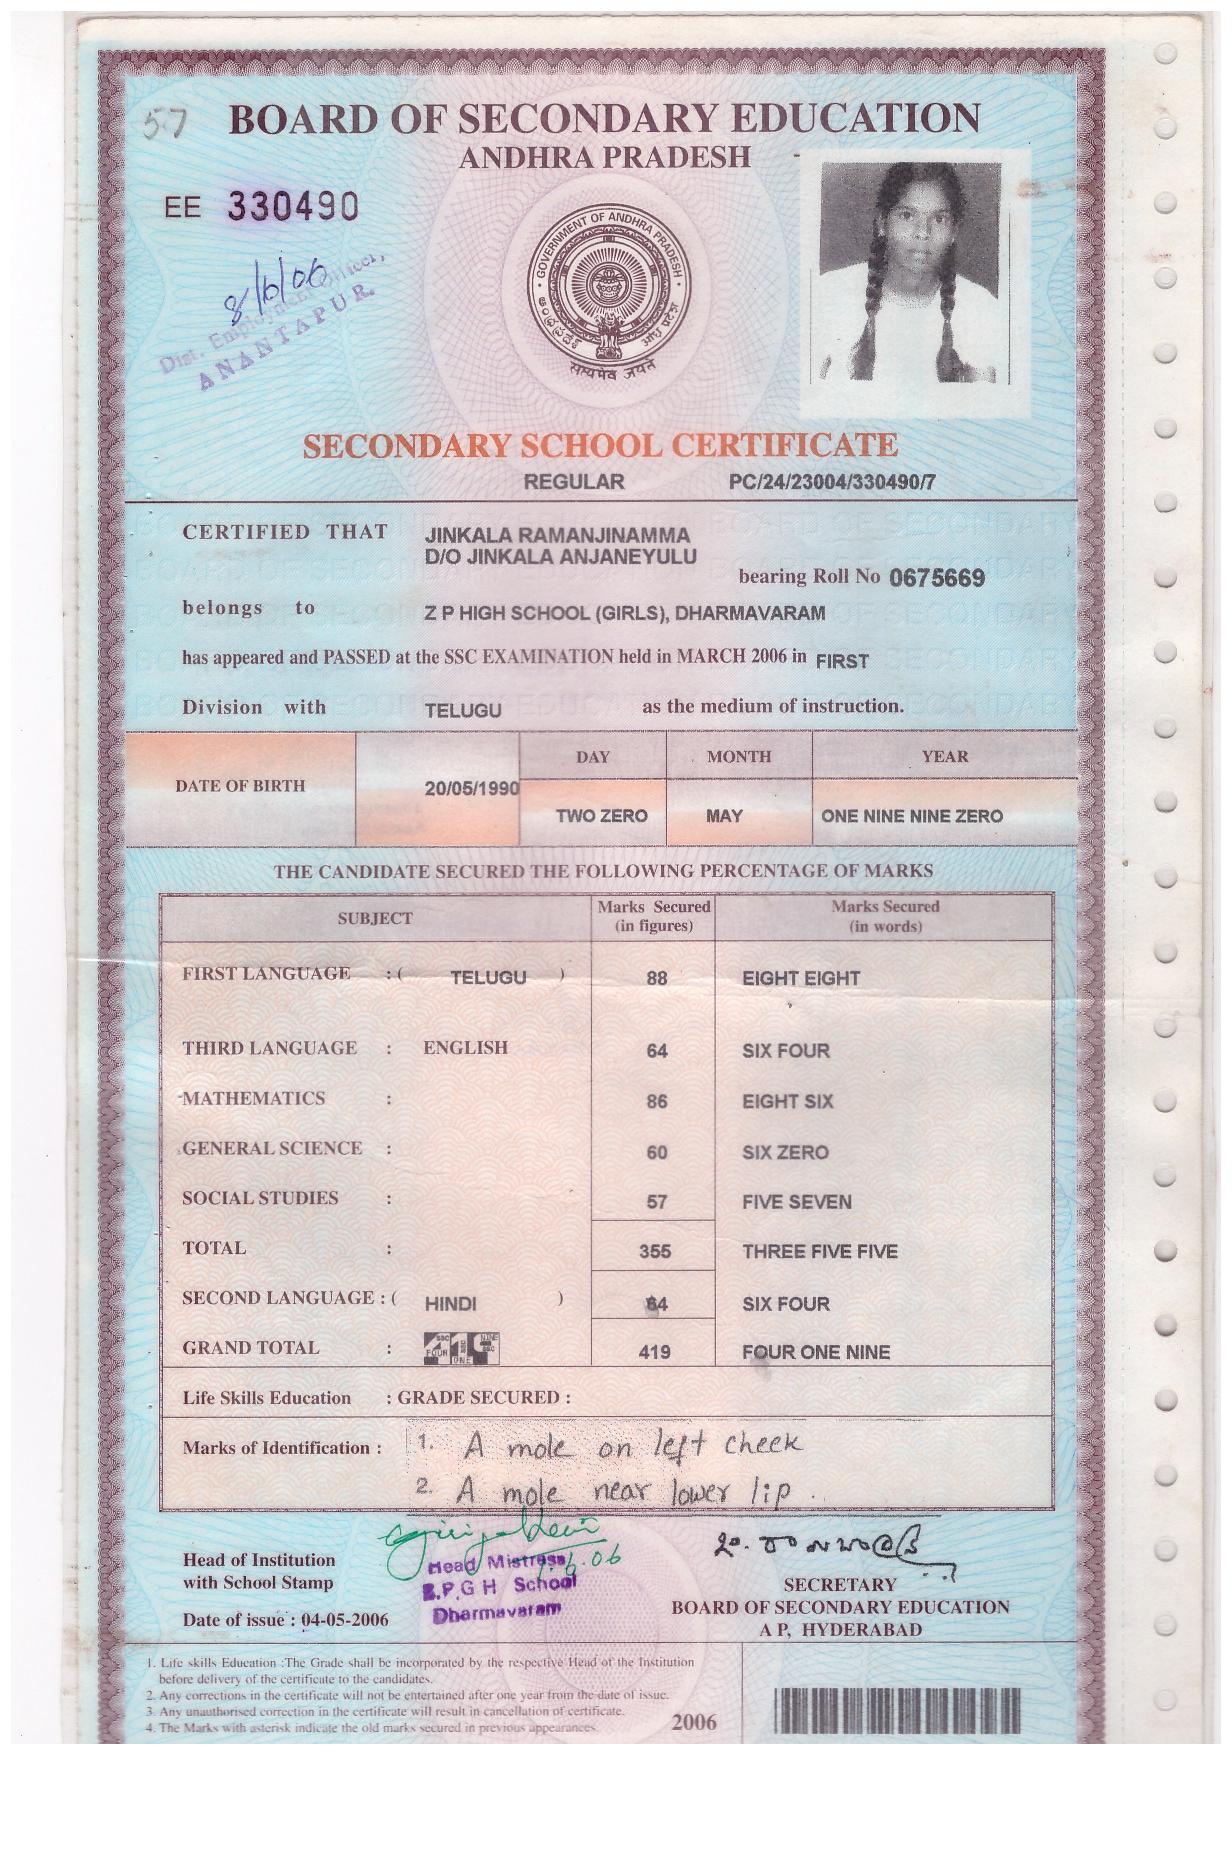 57
BOARD OF SECONDARY EDUCATION
ANDHRA PRADESH
EE 330490
GOVERNMENT OF ANDHRA PRADESH
सत्यमेव जयते
8/6/06
Dist. Employment Officer,
ANANTAPUR.
SECONDARY SCHOOL CERTIFICATE
REGULAR PC/24/23004/330490/7
CERTIFIED THAT JINKALA RAMANJINAMMA
D/O JINKALA ANJANEYULU
bearing Roll No 0675669
belongs to Z P HIGH SCHOOL (GIRLS), DHARMAVARAM
has appeared and PASSED at the SSC EXAMINATION held in MARCH 2006 in FIRST
Division with TELUGU as the medium of instruction.
DAY MONTH YEAR
DATE OF BIRTH 20/05/1990
TWO ZERO MAY ONE NINE NINE ZERO
THE CANDIDATE SECURED THE FOLLOWING PERCENTAGE OF MARKS
SUBJECT Marks Secured (in figures) Marks Secured (in words)
FIRST LANGUAGE : ( TELUGU ) 88 EIGHT EIGHT
THIRD LANGUAGE : ENGLISH 64 SIX FOUR
MATHEMATICS : 86 EIGHT SIX
GENERAL SCIENCE : 60 SIX ZERO
SOCIAL STUDIES : 57 FIVE SEVEN
TOTAL : 355 THREE FIVE FIVE
SECOND LANGUAGE : ( HINDI ) 64 SIX FOUR
GRAND TOTAL : 419 FOUR ONE NINE
Life Skills Education : GRADE SECURED :
Marks of Identification : 1. A mole on left cheek
2. A mole near lower lip.
Head of Institution
with School Stamp
Head Mistress
Z.P.G H School
Dharmavaram
Date of issue : 04-05-2006
SECRETARY
BOARD OF SECONDARY EDUCATION
A P, HYDERABAD
1. Life skills Education :The Grade shall be incorporated by the respective Head of the Institution
before delivery of the certificate to the candidates.
2. Any corrections in the certificate will not be entertained after one year from the date of issue.
3. Any unauthorised correction in the certificate will result in cancellation of certificate.
4. The Marks with asterisk indicate the old marks secured in previous appearances.
2006